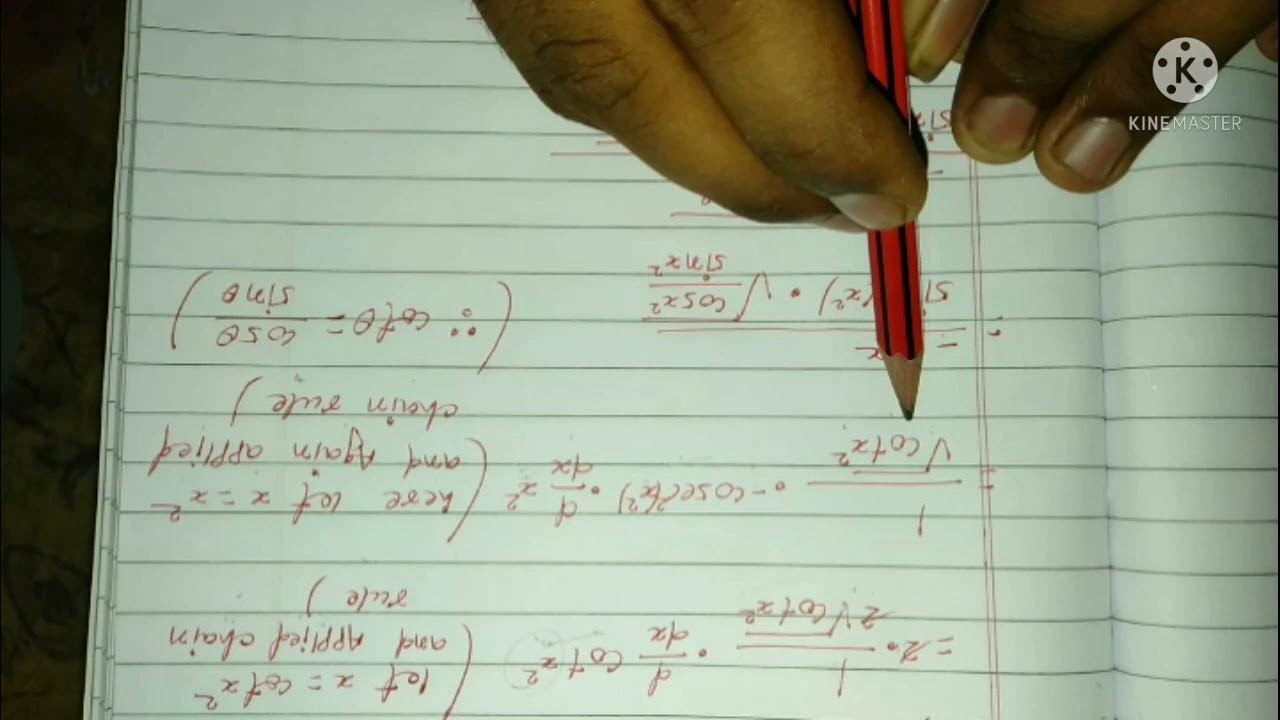 = 2. 1/2√cotx² . d/dx cotx² (let x = cotx²
and applied chain
rule)
= 1/√cotx² . -cosec²(x²) . d/dx x² (here let x = x²
and again applied
chain rule)
= (x²) . √cosx²/sinx² (∵ cotθ = cosθ/sinθ)
KINEMASTER